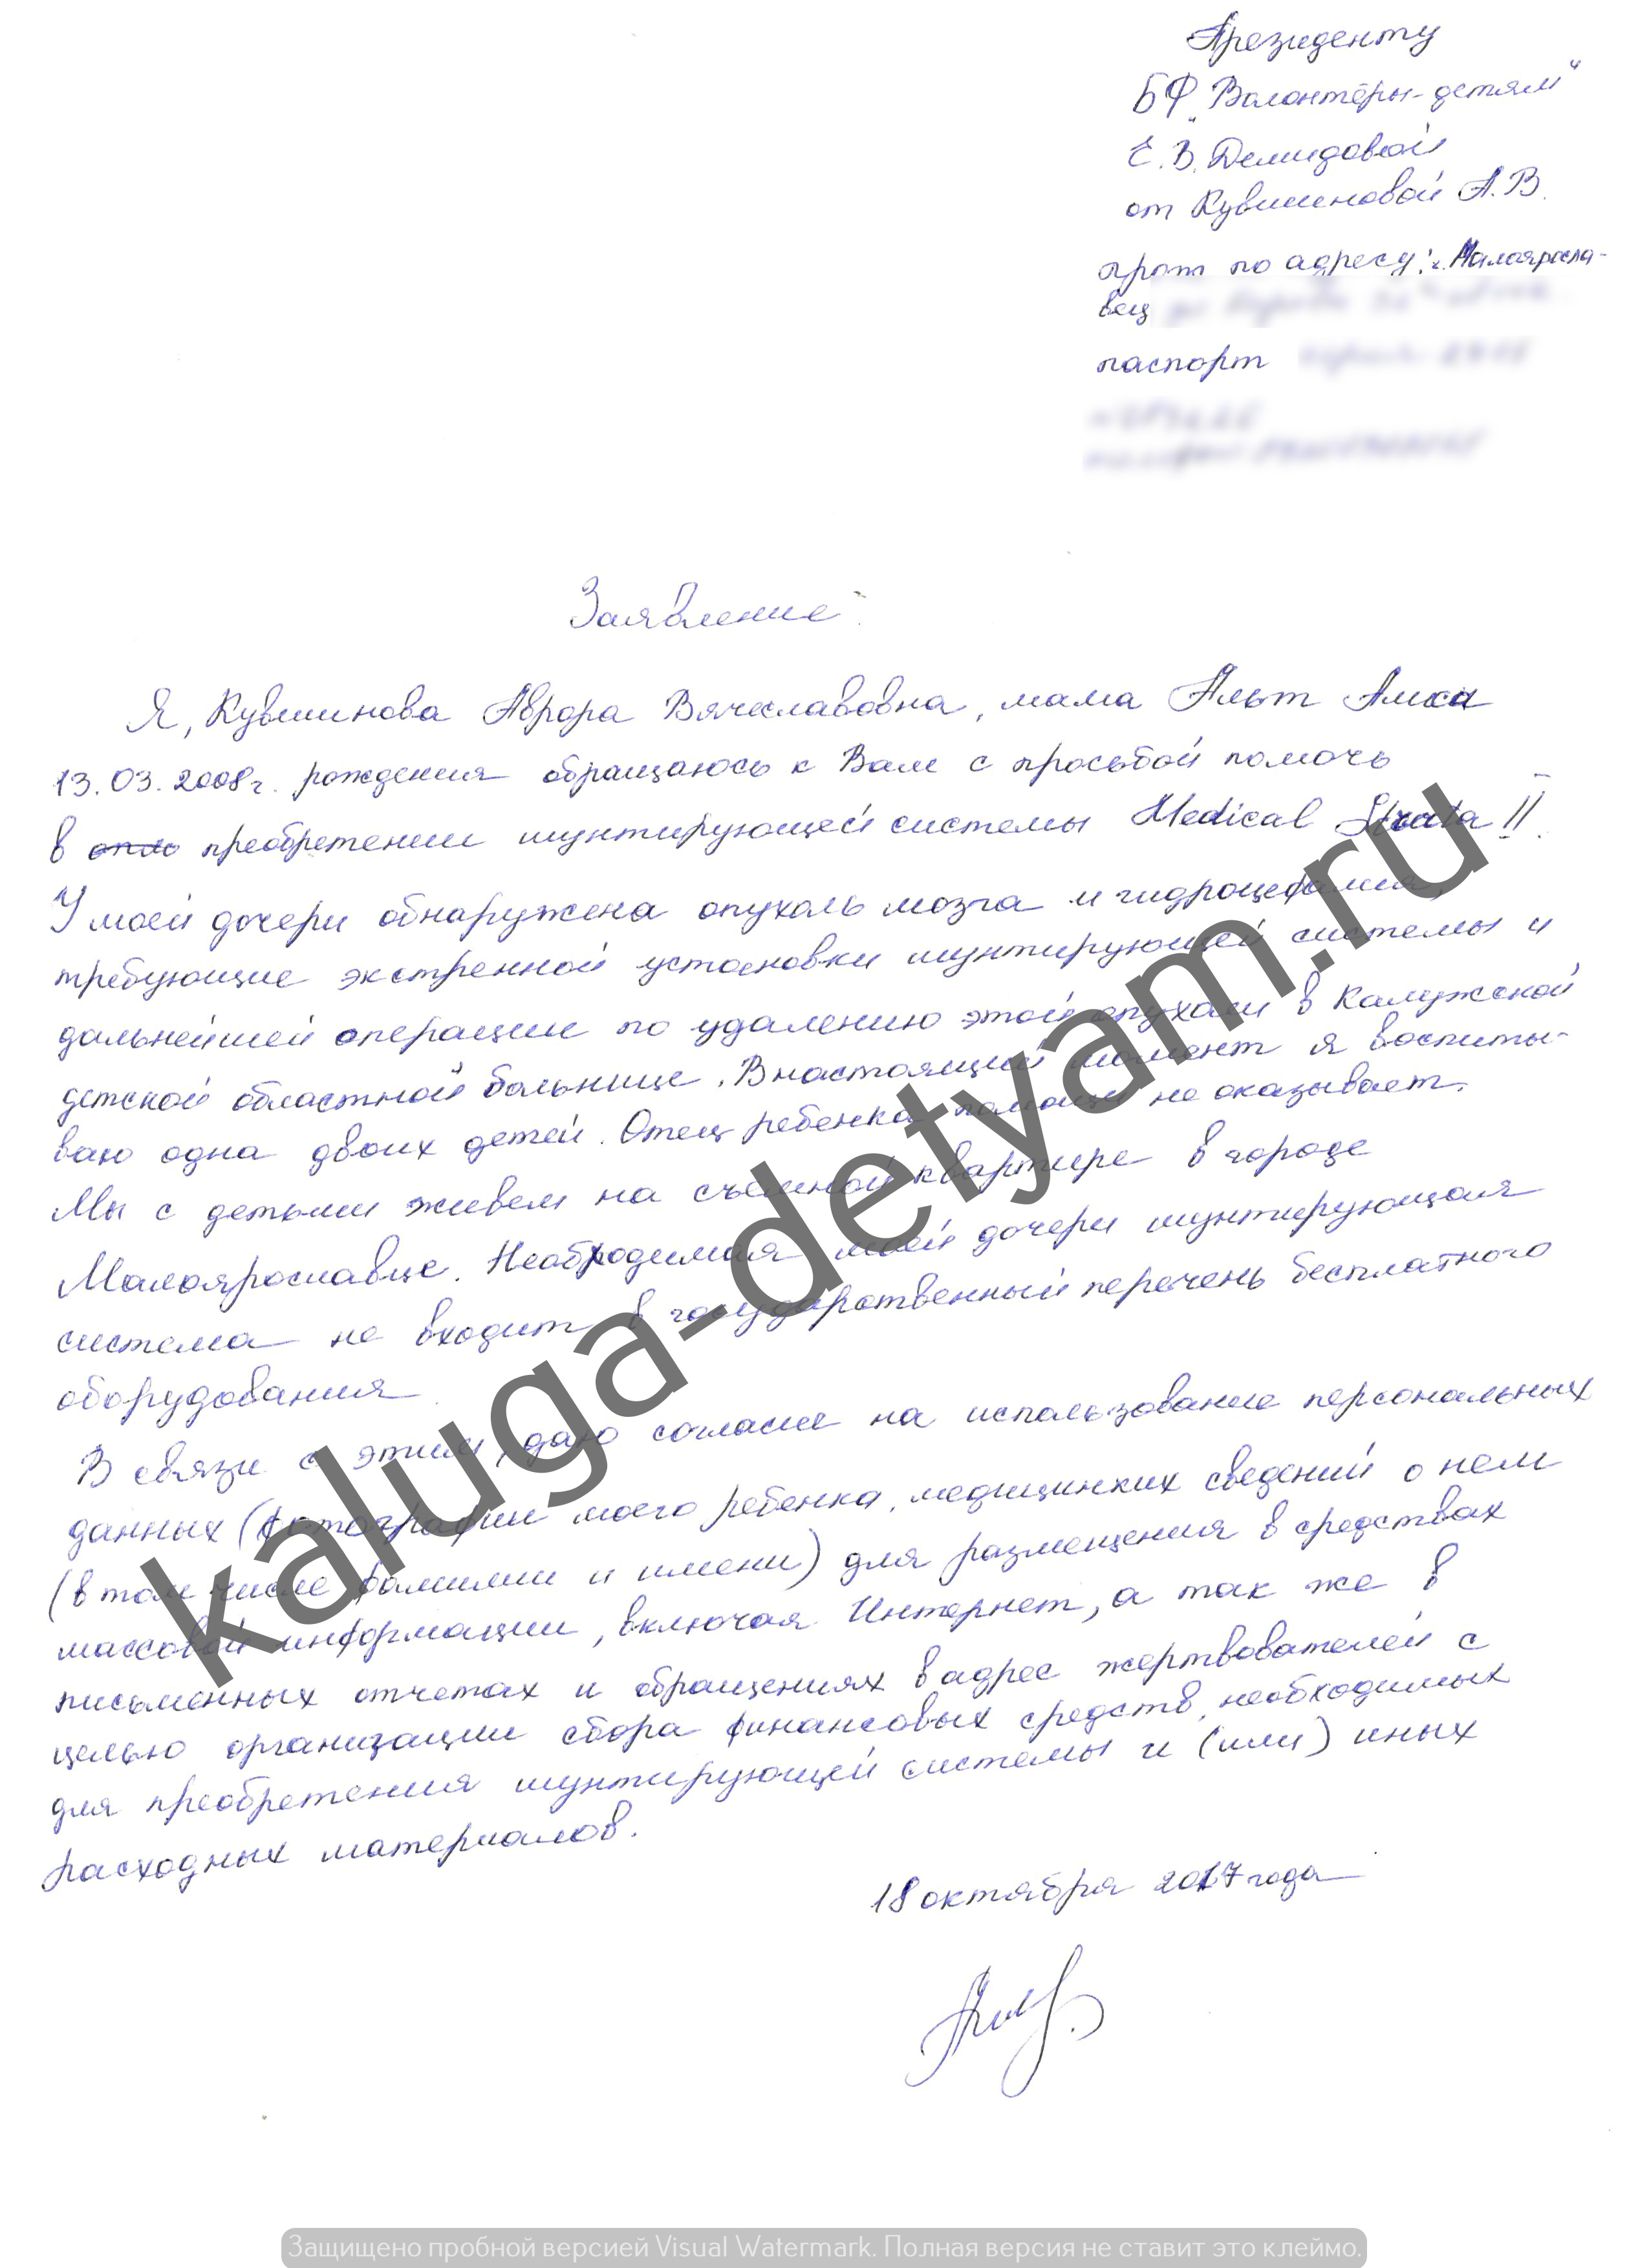 Президенту
БФ „Волонтёры-детям"
Е.В. Демидовой
от Кувшиновой А.В.
прож по адресу: г. Малояросла-
вец
паспорт
Заявление.
Я, Кувшинова Аврора Вячеславовна, мама Альт Алиса
13.03.2008г. рождения обращаюсь к Вам с просьбой помочь
в преобретении шунтирующей системы Medical Strata II.
У моей дочери обнаружена опухоль мозга и гидроцефалия,
требующие экстренной установки шунтирующей системы и
дальнейшей операции по удалению этой опухоли в Калужской
детской областной больнице. В настоящий момент я воспиты-
ваю одна двоих детей. Отец ребенка помощи не оказывает.
Мы с детьми живем на съемной квартире в городе
Малоярославце. Необходимая моей дочери шунтирующая
система не входит в государственный перечень бесплатного
оборудования.
В связи с этим, даю согласие на использование персональных
данных (фотографии моего ребенка, медицинких сведений о нем
(в том числе фамилии и имени) для размещения в средствах
массовой информации, включая Интернет, а так же в
письменных отчетах и обращениях в адрес жертвователей с
целью организации сбора финансовых средств, необходимых
для преобретения шунтирующей системы и (или) иных
расходных материалов.
18 октября 2017 года
kaluga-detyam.ru
Защищено пробной версией Visual Watermark. Полная версия не ставит это клеймо.